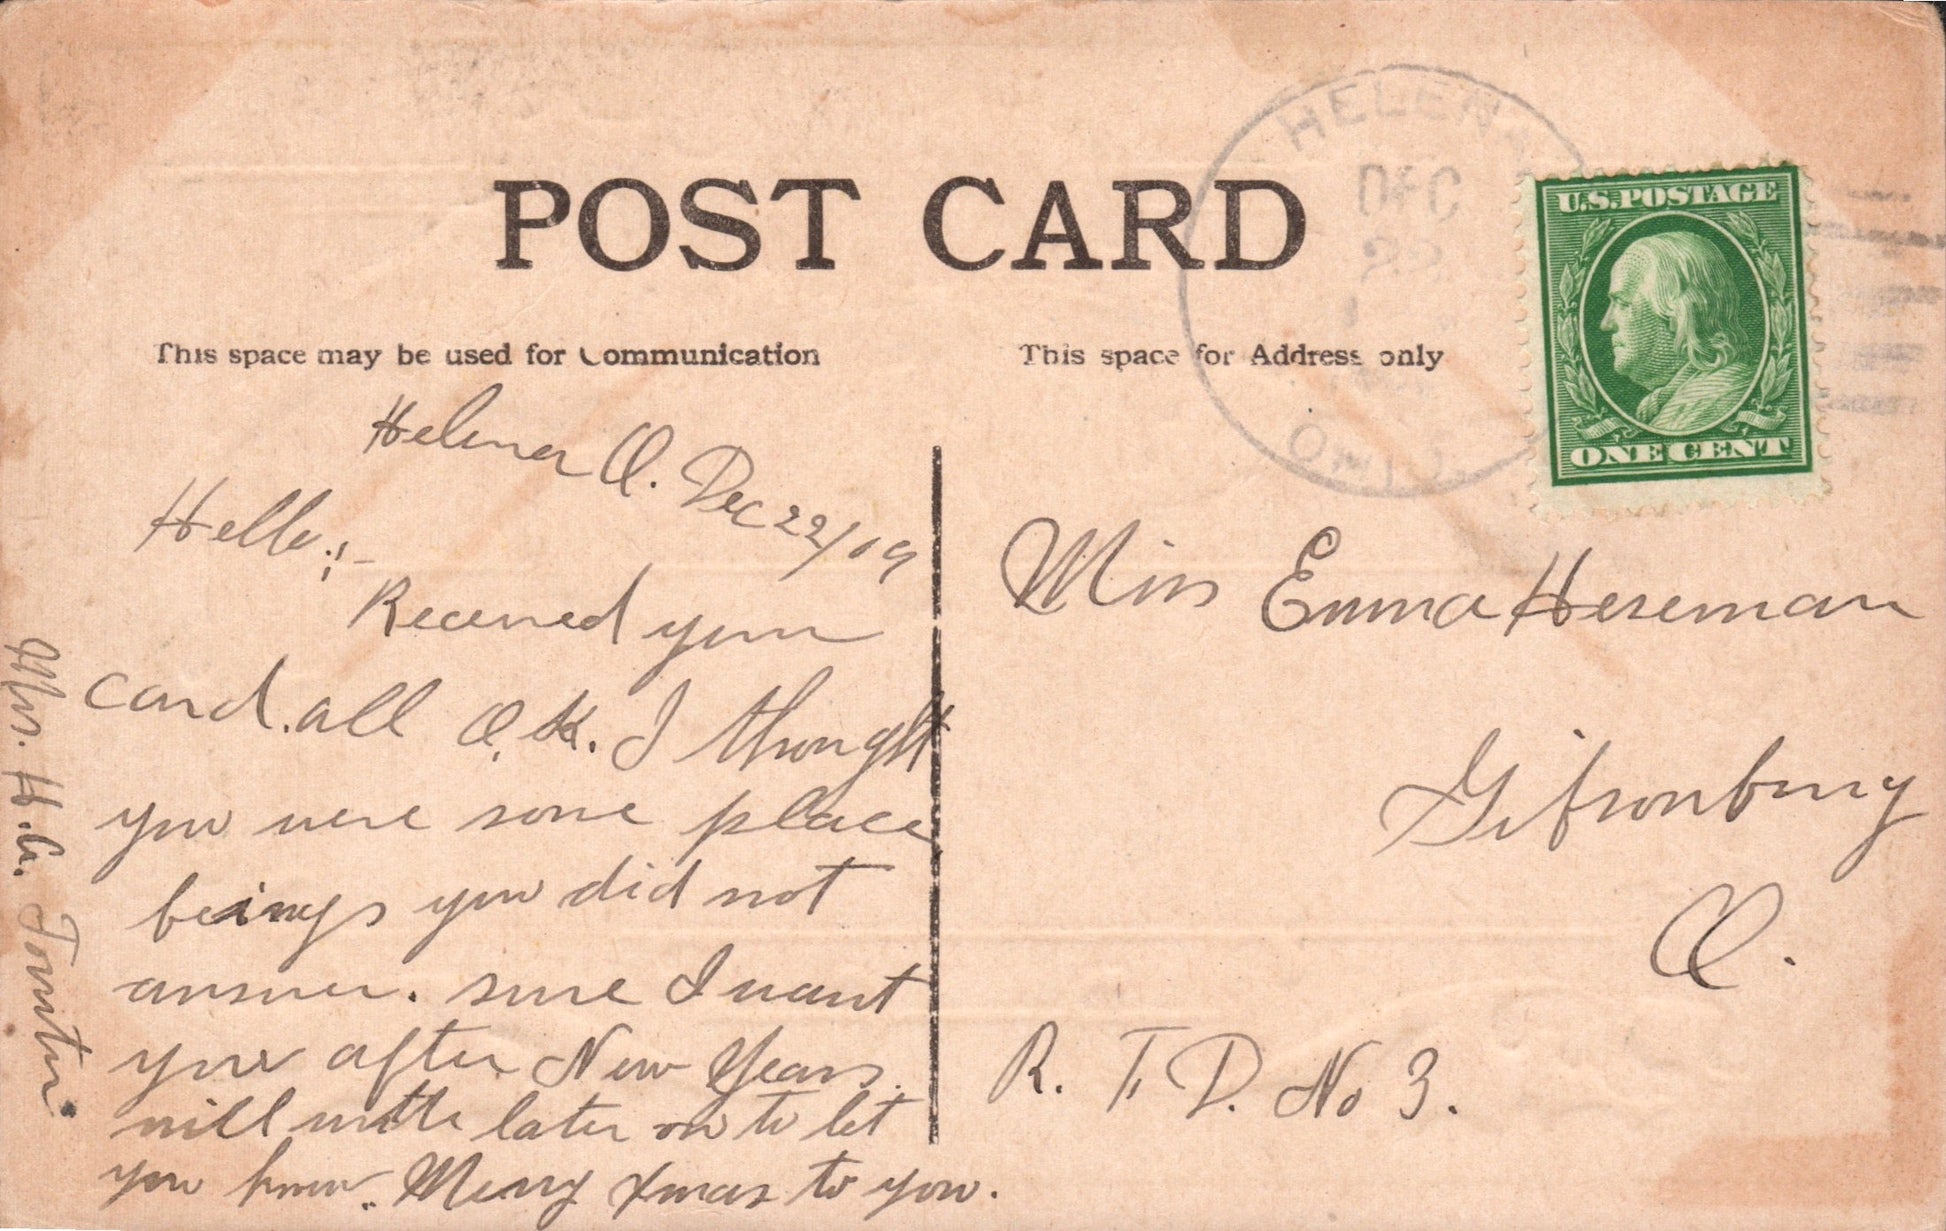 HELENA
DEC
22
OHIO
U.S.POSTAGE
ONE CENT
POST CARD
This space may be used for Communication
This space for Address only
Helena O. Dec 22/09
Hello;-
Received your
card. all O.K. I thought
you were some place
beings you did not
answer. sure I want
you after New Years.
will write later on to let
you know. Merry Xmas to you.
Mrs. H.G.
Miss Emma Heseman
Gibsonburg
O.
R. F. D. No 3.